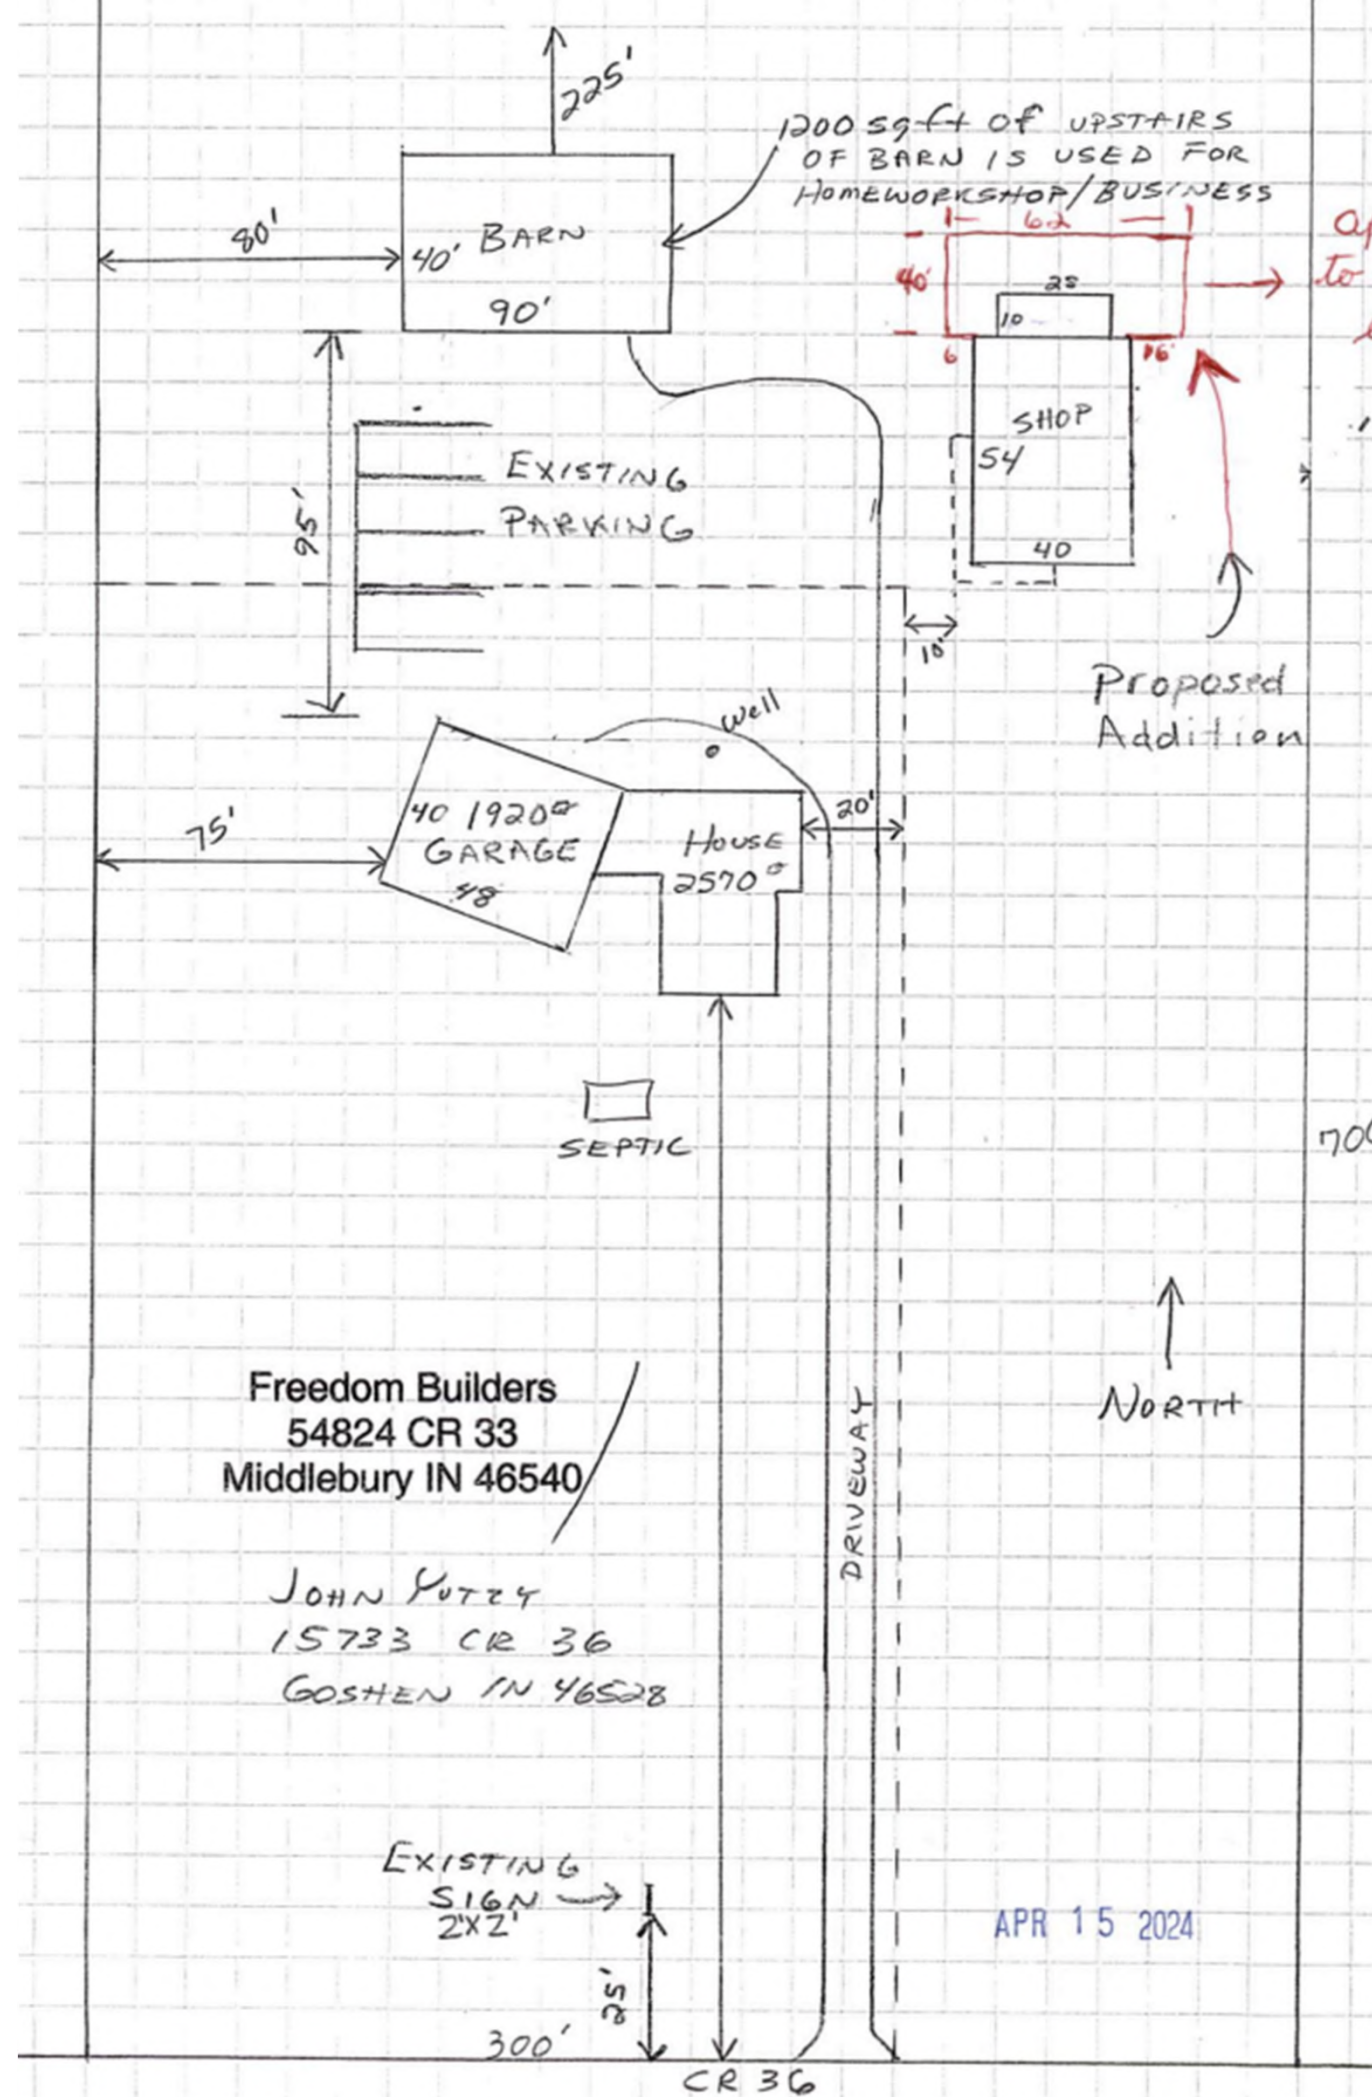 225'
1200 sqft of UPSTAIRS
OF BARN IS USED FOR
HOMEWORKSHOP/BUSINESS
80'
40' BARN
90'
62
40'
to
28
10
6
16'
SHOP
54
40
95'
EXISTING
PARKING
10'
Proposed
Addition
well
75'
40 1920
GARAGE
48
HOUSE
2570
20'
SEPTIC
700
NORTH
Freedom Builders
54824 CR 33
Middlebury IN 46540
DRIVEWAY
JOHN YUTZY
15733 CR 36
GOSHEN IN 46528
EXISTING
SIGN
2'X2'
APR 15 2024
25'
300'
CR 36